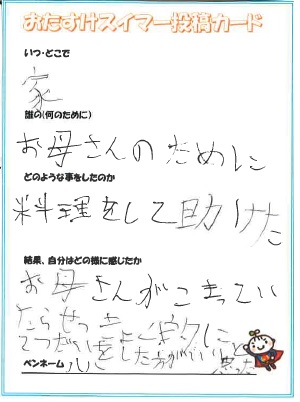 おたすけスイマー投稿カード
いつ・どこで
家
誰の(何のために)
お母さんのために
どのような事をしたのか
料理をして助けた
結果、自分はどの様に感じたか
お母さんがこまってい
たらせっきょく
てつだいをした方がいいと思った
ペンネーム